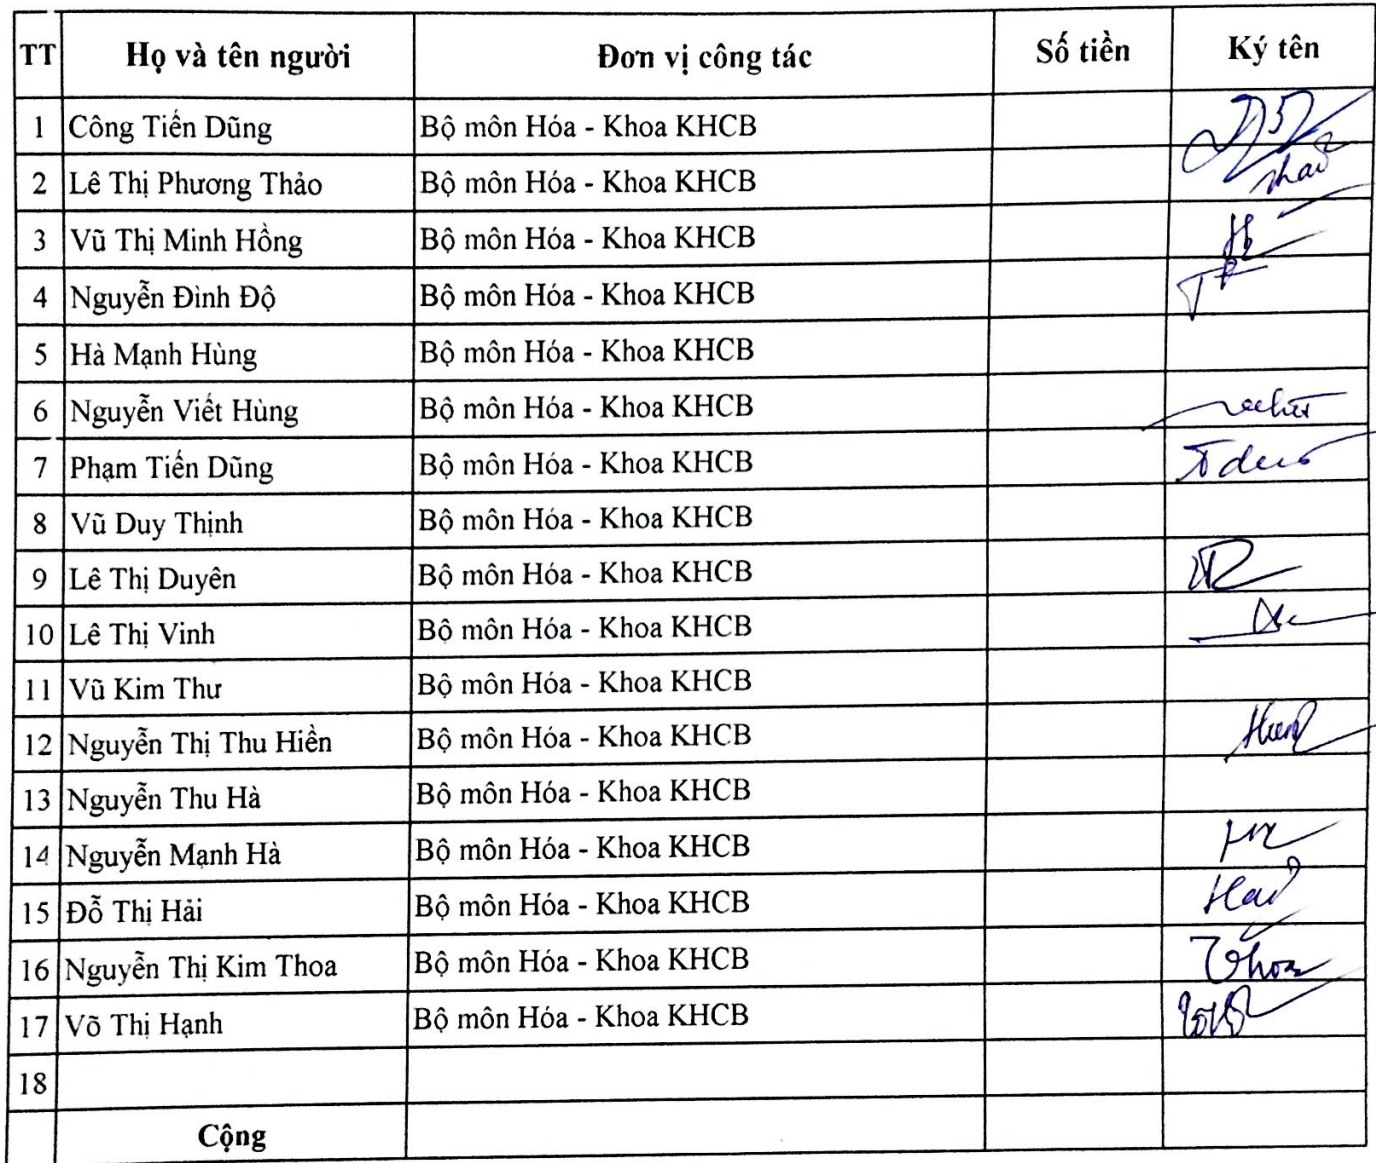 TT Họ và tên người Đơn vị công tác Số tiền Ký tên
1 Công Tiến Dũng Bộ môn Hóa - Khoa KHCB
2 Lê Thị Phương Thảo Bộ môn Hóa - Khoa KHCB Thảo
3 Vũ Thị Minh Hồng Bộ môn Hóa - Khoa KHCB
4 Nguyễn Đình Độ Bộ môn Hóa - Khoa KHCB
5 Hà Mạnh Hùng Bộ môn Hóa - Khoa KHCB
6 Nguyễn Viết Hùng Bộ môn Hóa - Khoa KHCB
7 Phạm Tiến Dũng Bộ môn Hóa - Khoa KHCB
8 Vũ Duy Thịnh Bộ môn Hóa - Khoa KHCB
9 Lê Thị Duyên Bộ môn Hóa - Khoa KHCB
10 Lê Thị Vinh Bộ môn Hóa - Khoa KHCB
11 Vũ Kim Thư Bộ môn Hóa - Khoa KHCB
12 Nguyễn Thị Thu Hiền Bộ môn Hóa - Khoa KHCB
13 Nguyễn Thu Hà Bộ môn Hóa - Khoa KHCB
14 Nguyễn Mạnh Hà Bộ môn Hóa - Khoa KHCB
15 Đỗ Thị Hải Bộ môn Hóa - Khoa KHCB Hải
16 Nguyễn Thị Kim Thoa Bộ môn Hóa - Khoa KHCB Thoa
17 Võ Thị Hạnh Bộ môn Hóa - Khoa KHCB
18
Cộng